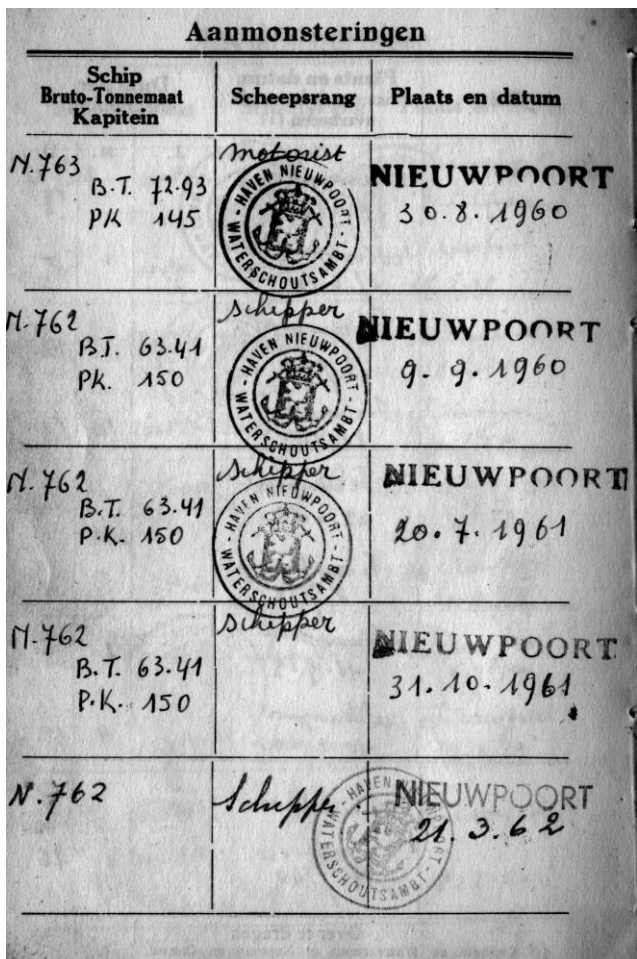 Aanmonsteringen
Schip
Bruto-Tonnemaat
Kapitein
Scheepsrang
Plaats en datum
N.763
B.T. 72.93
PK 145
motorist
HAVEN NIEUWPOORT - WATERSCHOUTSAMBT -
NIEUWPOORT
30.8.1960
N.762
B.T. 63.41
PK. 150
schipper
HAVEN NIEUWPOORT - WATERSCHOUTSAMBT -
NIEUWPOORT
9.9.1960
N.762
B.T. 63.41
P.K. 150
schipper
HAVEN NIEUWPOORT - WATERSCHOUTSAMBT -
NIEUWPOORT
20.7.1961
N.762
B.T. 63.41
P.K. 150
schipper
NIEUWPOORT
31.10.1961
N.762
Schipper
NIEUWPOORT
21.3.62